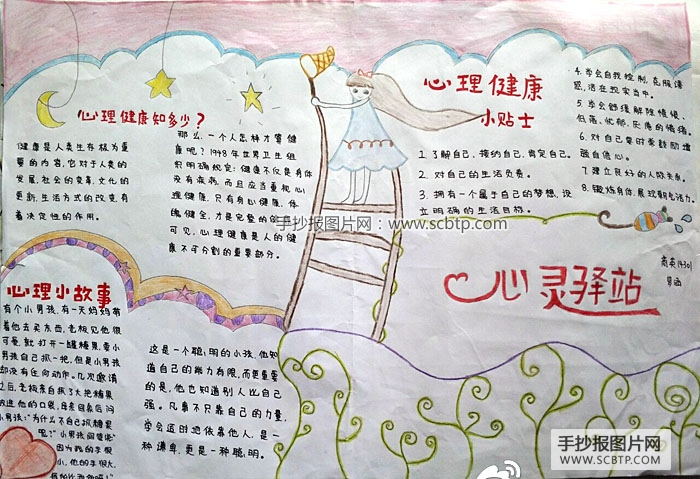 心理健康知多少?
健康是人类生存极为重
要的内容,它对于人类的
发展,社会的变革,文化的
更新,生活方式的改变,有
着决定性的作用。
那么,一个人怎样才算健
康呢?1948年世界卫生组
织明确规定:健康不仅是身体
没有疾病,而且应当重视心
理健康,只有身心健康、体
魄健全,才是完整的健
可见,心理健康是人的健
康不可分割的重要部分。
心理健康
小贴士
1.了解自己,接纳自己,肯定自己。
2.对自己的生活负责。
3.拥有一个属于自己的梦想,设
立明确的生活目标。
4.学会自我控制,在
活在现实当中。
5.学会舒缓解除愤恨、
低落、忧郁、厌倦的情绪
6.对自己要时常鼓励增
强自信心。
7.建立良好的人际关系。
8.锻炼身体,展现青春活力。
手抄报图片网:www.scbtp.com
商英14301
心灵驿站
心理小故事
有个小男孩,有一天妈妈带
着他去买东西,老板见他很
可爱,就打开一罐糖果,要小
男孩自己抓一把,但是小男孩
却没有任何动作。几次邀请
之后,老板亲自抓了大把糖果
放进他的口袋,母亲回家后问
小男孩:"为什么不自己抓糖果
呢?"小男孩回答说:"
因为我的手很
小,他的手很大,
这是一个聪明的小孩,他知
道自己的能力有限,而更重要
的是,他也知道别人比自己
强。凡事不只靠自己的力量,
学会适时地依靠他人,是一
种谦卑,更是一种聪明。
手抄报图片网
WWW.SCBTP.COM